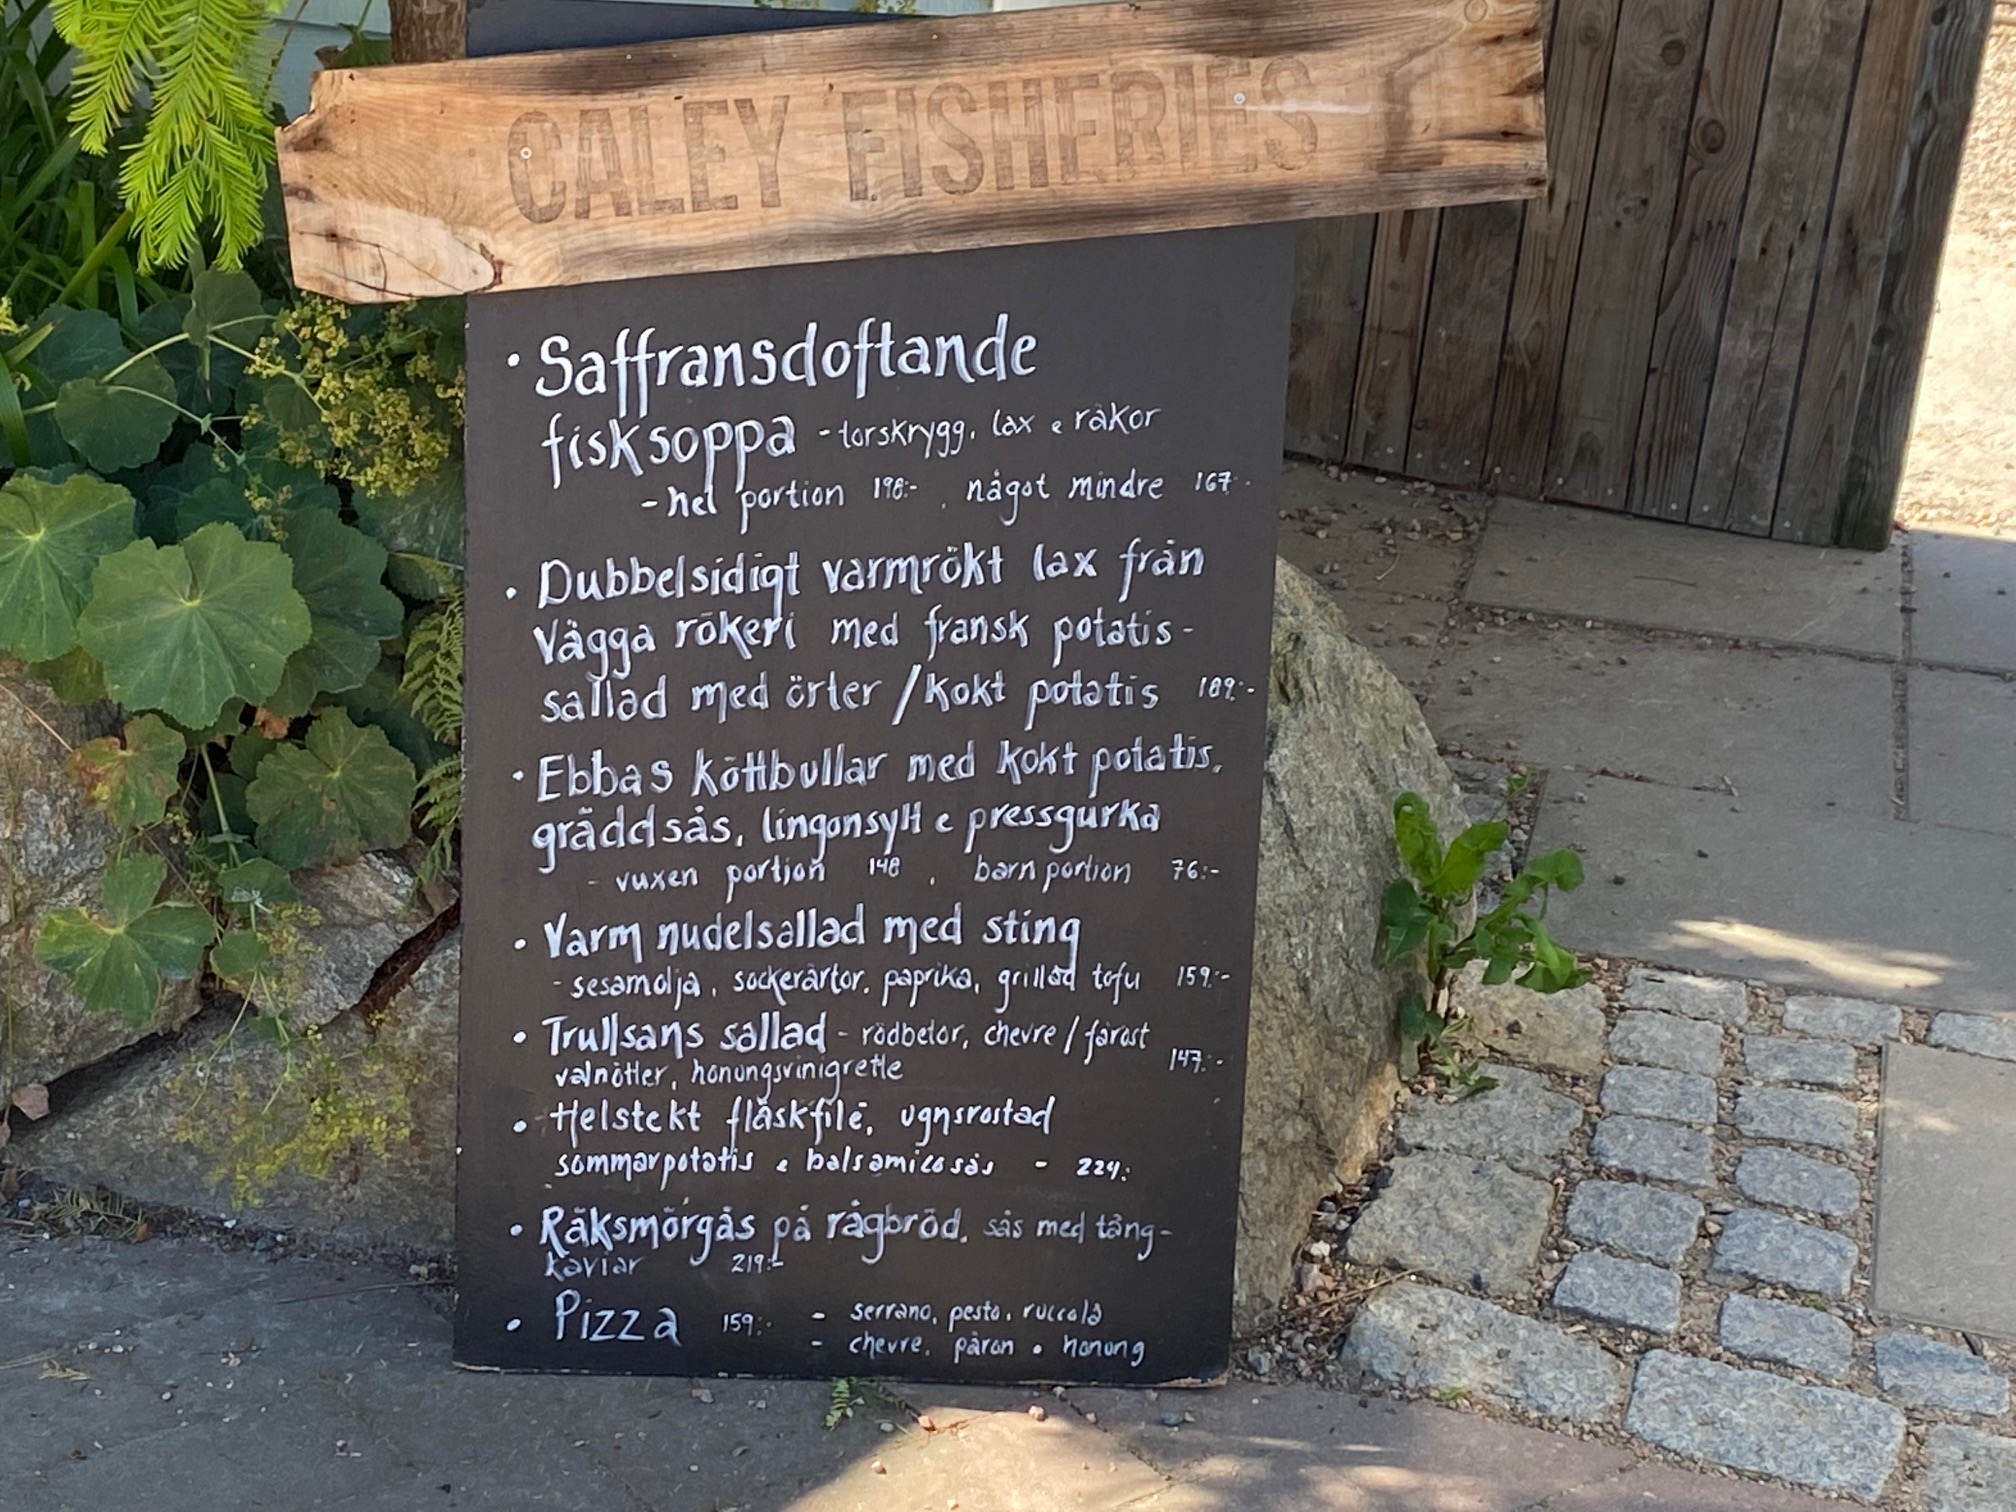 CALEY FISHERIES
• Saffransdoftande
fisksoppa - torskrygg, lax & räkor
- hel portion 198:- , något mindre 167:-
• Dubbelsidigt varmrökt lax från
Vägga rökeri med fransk potatis-
sallad med örter / kokt potatis 189:-
• Ebbas köttbullar med kokt potatis,
gräddsås, lingonsylt & pressgurka
- vuxen portion 148 , barn portion 76:-
• Varm nudelsallad med sting
- sesamolja, sockerärtor, paprika, grillad tofu 159:-
• Trullsans sallad - rödbetor, chevre / fårost
valnötter, honungsvinigrette 147:-
• Helstekt fläskfilé, ugnsrostad
sommarpotatis & balsamicosås - 224:
• Räksmörgås på rågbröd, sås med tång-
kaviar 219:-
• Pizza 159:- - serrano, pesto, ruccola
- chevre, päron • honung